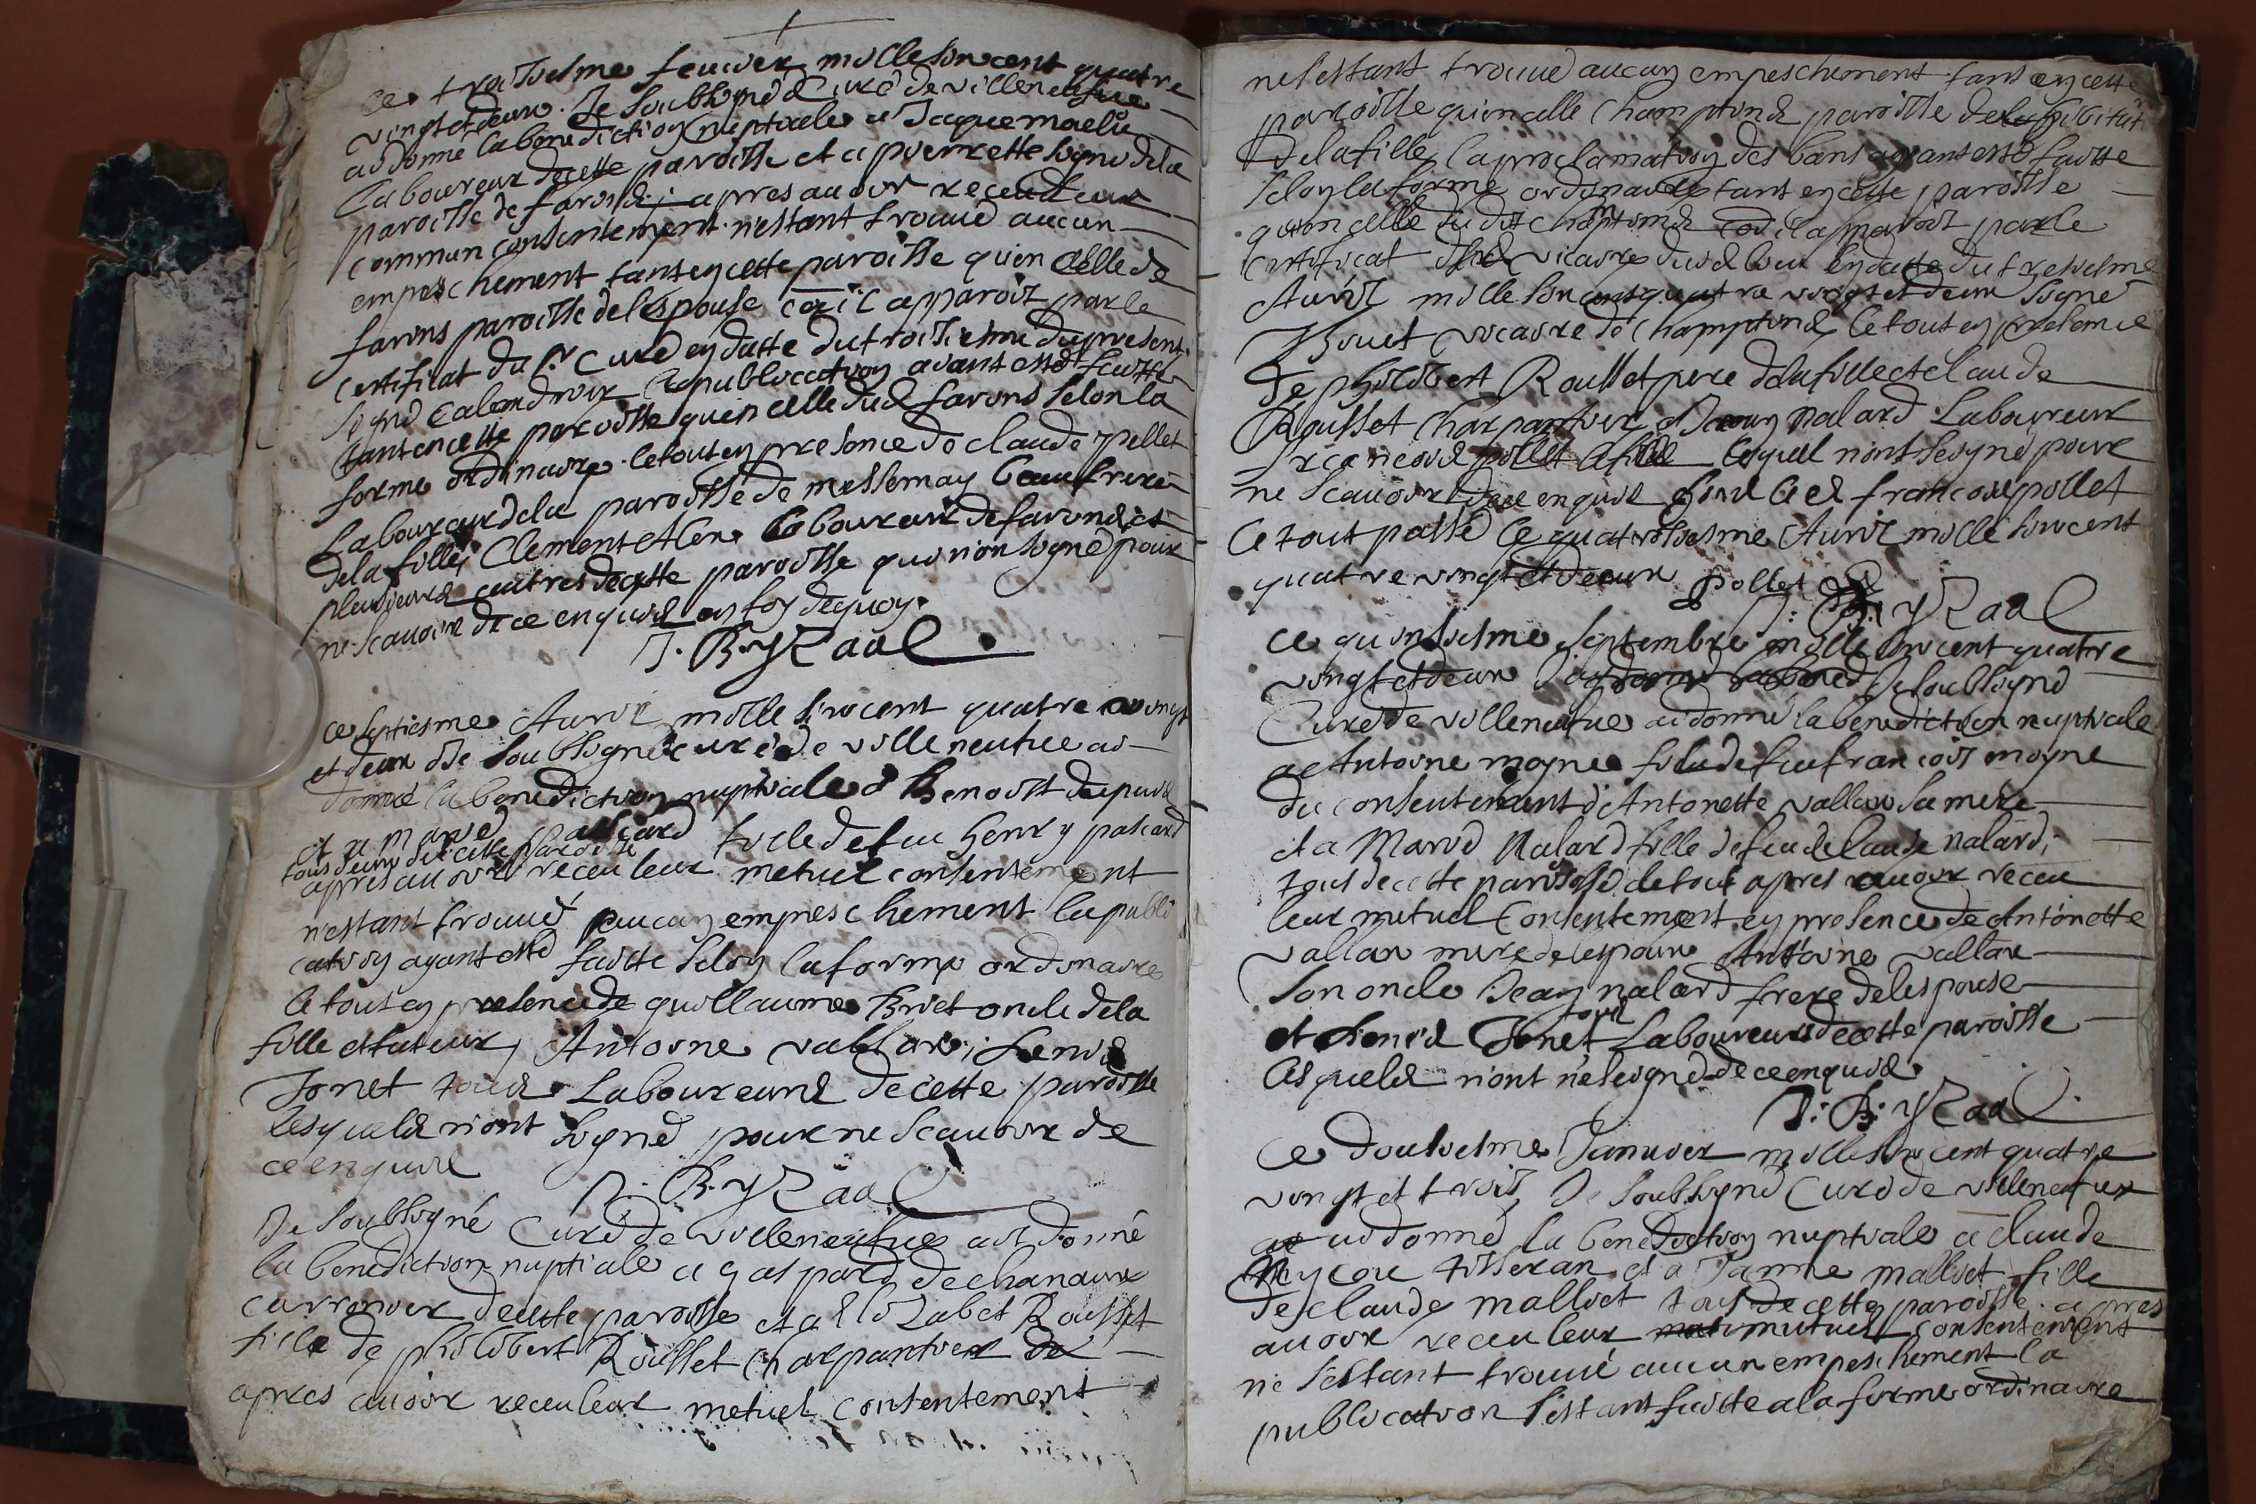 ce troisiesme feuvier mille sixcent quatre
vingt et deux. Je soubsigné Curé de villeneufue
ai donné la benediction nuptiale a Jaque
laboureur de cette paroisse et a pierrette signe de la
paroisse de farins apres auoir receu leur
commun consentement n'estant trouué aucun
empeschement tant en cette paroisse qu'en celle de
farins paroisse de lespouse il apparoit par le
certificat du sr Curé en datte du troisiesme du present
signé la publication aiant esté faitte
tant en cette paroisse qu'en celle dud farins selon la
forme ordinaire. le tout en presence de claude pellet
laboureur de la paroisse de messemay beaufrere
de la fille, Clement laboureur de farins et
plusieurs autres de cette paroisse qui n'ont signé pour
ne scauoir de ce enquis en foy dequoy.
J. B. yzaal
ce septiesme Auril mille sixcent quatre vingt
et deux Je soubsigné curé de villeneufue ai
donné la benediction nuptiale a Benoist depuis
et a marie pascard fille de feu Henry pascard
tous deux de cette paroisse
apres auoir receu leur metuel consentement
n'estant trouué aucun empeschement la publi
cation ayant esté faitte selon la forme ordinaire
le tout en presence de guillaume Briet oncle de la
fille et tuteur, Antoine vallar, Denis
Jonet tous Laboureurs de cette paroisse
lesquels n'ont signé pour ne scauoir de
ce enquis
J. B. yzaal
Je soubsigné Curé de villeneufue ai donné
la benediction nuptiale a gaspard dechanaux
de cette paroisse et a Elizabet Rousset
fille de philibert Rousset charpantier de
apres auoir receu leur metuel consentement
ne s'estant trouué aucun empeschement tant en cette
paroisse qu'en celle Champtond paroisse de
de la fille, la proclamation des bans aiant esté faitte
selon la forme ordinaire tant en cette paroisse
qu'en celle dudit Champtond il apparoit par le
certificat vicaire dud lieu en datte du
Auril mille sixcent quatre vingt et deux signé
vicaire de Champtond le tout en presence
de philibert Rousset pere de la fille et claude
Rousset charpantier et Jean nalard Laboureur
francois pollet lesquel n'ont signé pour
ne scauoir de ce enquis francois pollet
le tout passé ce Auril mille sixcent
quatre vingt et deux pollet
J. B. yzaal
ce quinsiesme septembre mille sixcent quatre
vingt et deux Je soubsigné
Curé de villeneufue ai donné la benediction nuptiale
a Antoine moyne fils de feu francois moyne
du consentement d'Antonette vallar sa mere
et a Marie Nalard fille de feu claude nalard;
tous de cette paroisse, le tout apres auoir receu
leur mutuel consentement en presence de Antonette
vallar mere de lespoux Antoine vallar
son oncle Jean nalard frere de lespouse
et Denis Jonet tous Laboureurs de cette paroisse
lesquels n'ont signé de ce enquis
J. B. yzaal
Ce dousiesme Januier mille sixcent quatre
vingt et trois Je soubsigné Curé de villeneufue
ai donné la benediction nuptiale a claude
tisseran et a Janne malliet fille
de claude malliet tous de cette paroisse apres
auoir receu leur mutuel consentement
ne s'estant trouué aucun empeschement la
publication s'estant faitte a la forme ordinaire